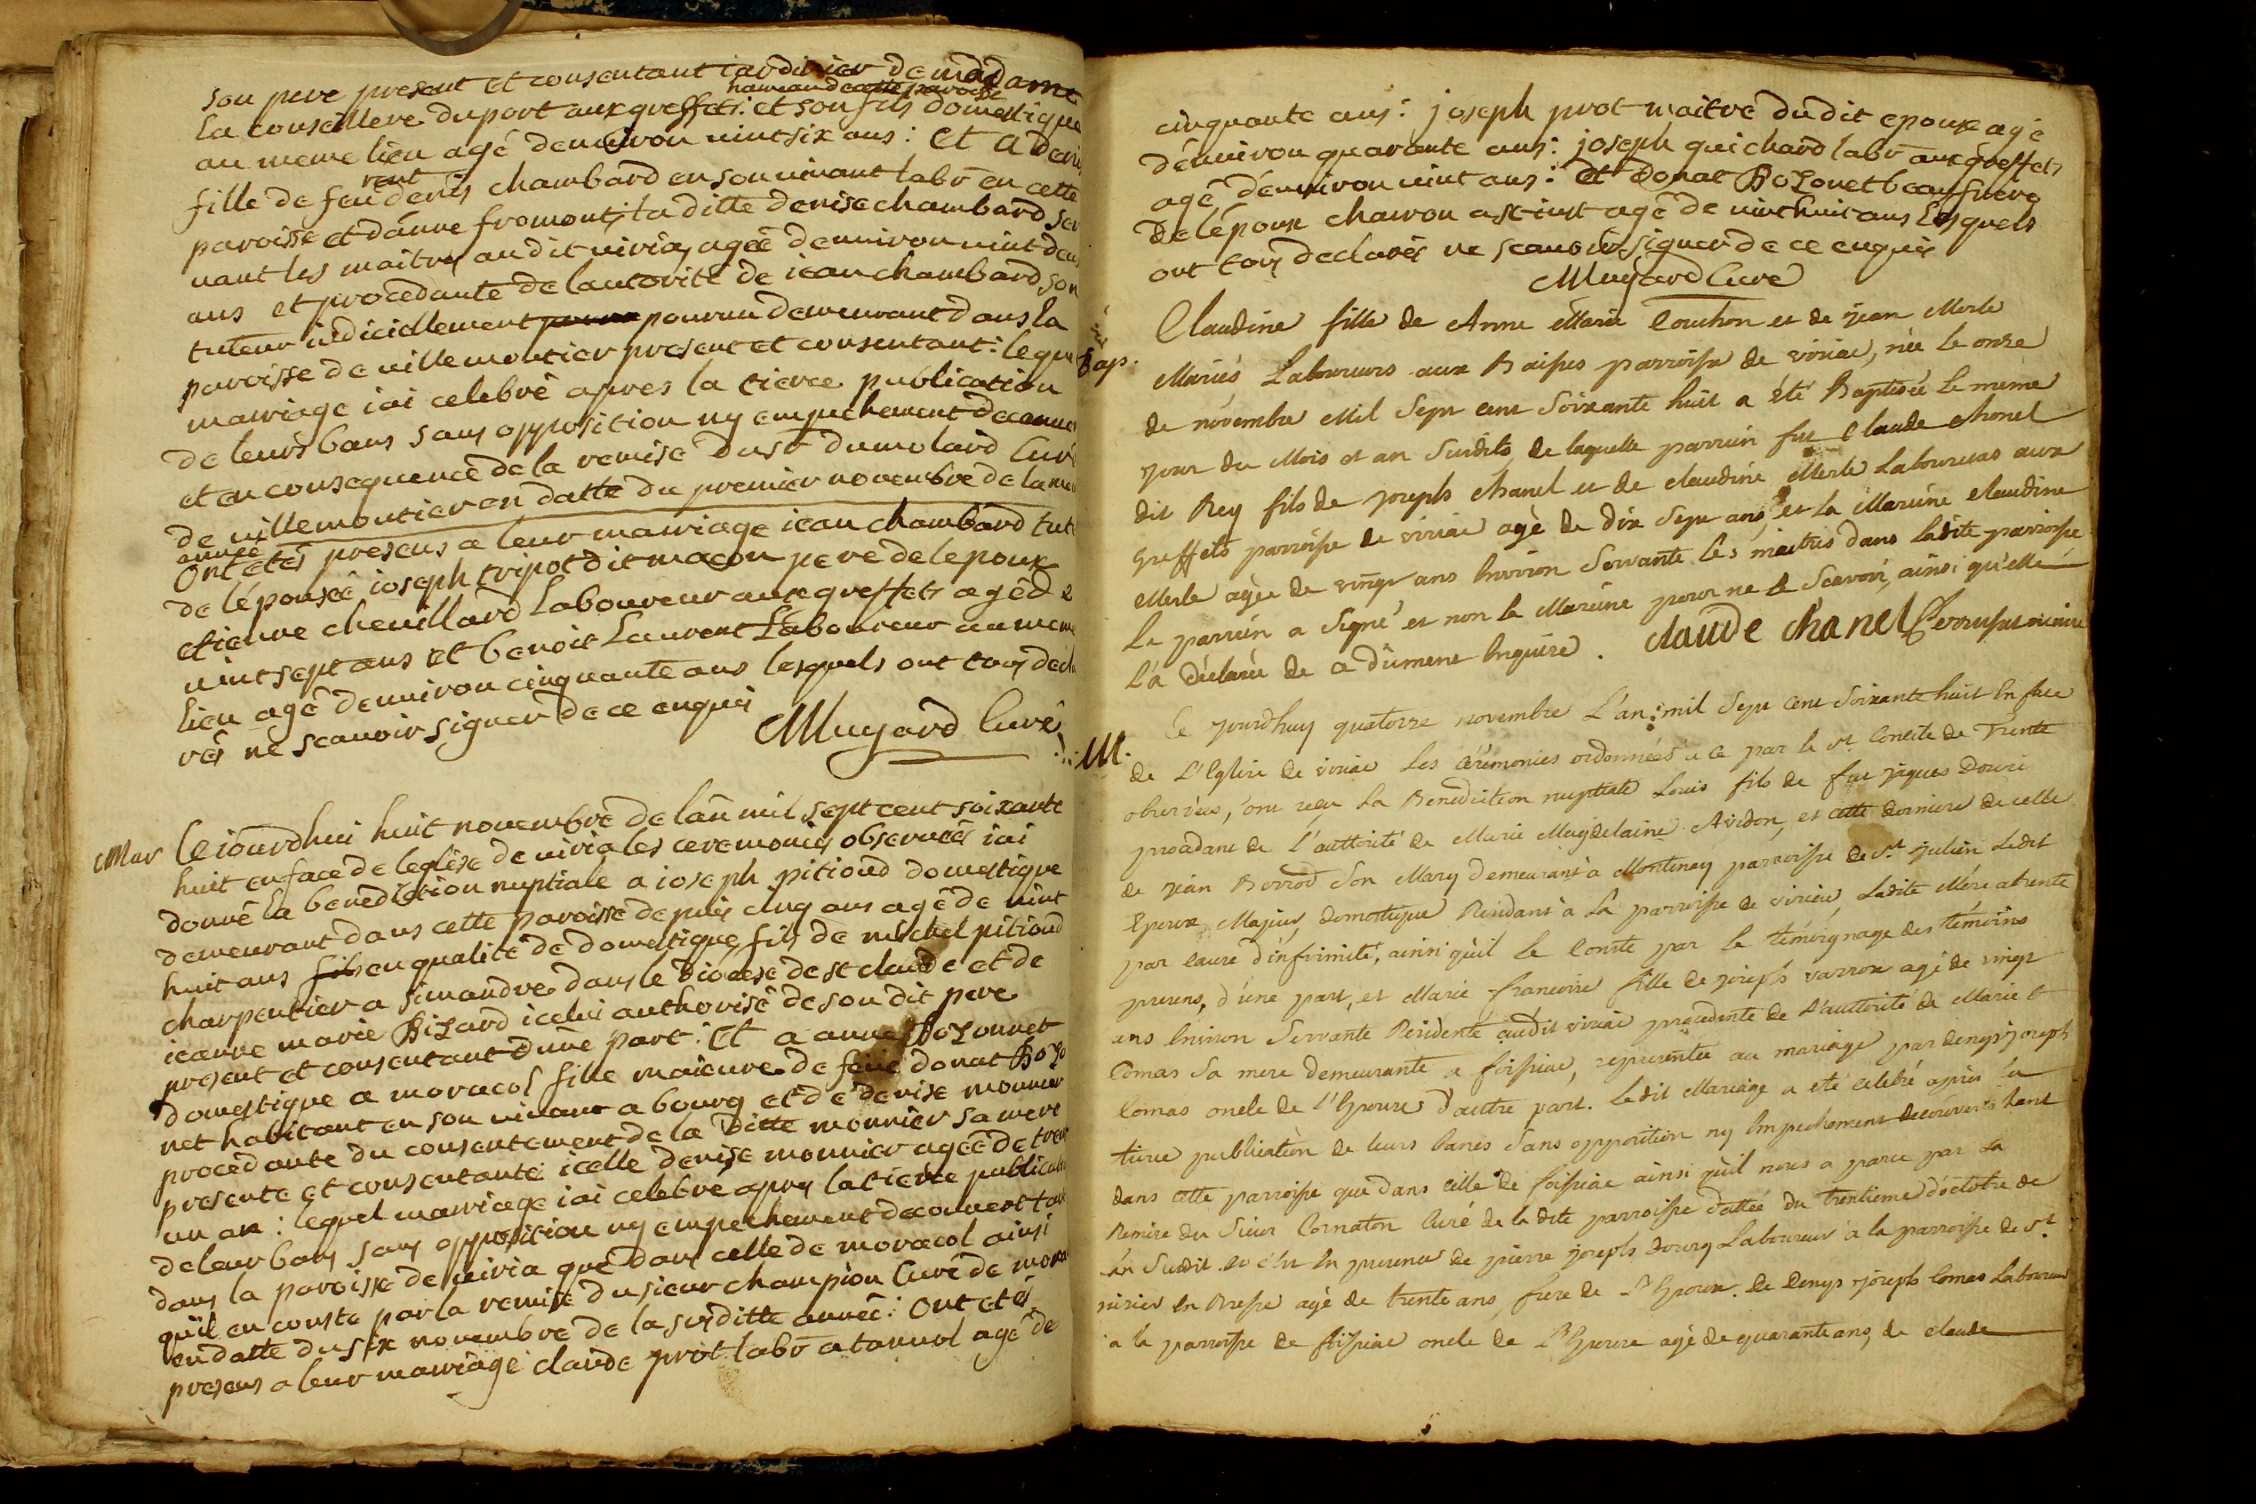 son pere present et consentant iardinier de madame
la conseillere duport aux greffets hameau de cette paroisse et son fils domestique
au meme lieu agé denviron vint six ans : Et a denise
fille de feu denis chambard en son vivant labr en cette
paroisse et danne fromont la ditte denise chambard ser
vant les maitres au dit viria, agée denviron vint deux
ans et procedante de lautorité de iean chambard, son
tuteur iudiciellement pourvu demeurant dans la
paroisse de villemoutier present et consentant : lequel
mariage iai celebré apres la tierce publication
de leurs bans sans opposition ny empechement decouvert
et en consequence de la remise du sr dumolard Curé
de villemoutier en datte du premier novembre de la meme
année
Ont etés presens a leur mariage iean chambard tuteur
de lépousée ioseph tripot dit maçon pere de lepoux
etienne chevillard Laboureur aux greffets agé de
vint sept ans et benoit Laurent Laboureur au meme
lieu agé denviron cinquante ans lesquels ont tous decla
rés ne scavoir signer de ce enquis
Mugard Curé
Mar Ce iourdhui huit novembre de lan mil sept cent soixante
huit en face de leglise de viria les ceremonies observées iai
donné la benediction nuptiale a ioseph pitioud domestique
demeurant dans cette paroisse depuis cinq ans agé de vint
huit ans fils en qualité de domestique, fils de michel pitioud
charpentier a simandre dans le diocese de st claude et de
ieanne marie bizard icelui authorisé de son dit pere
present et consentant dune part : Et a anne bozonnet
domestique a moracol fille maieure de feu donat bozo
net habitant en son vivant a bourg et de denise monnier
procedante du consentement de la ditte monnier sa mere
presente et consentante : icelle denise monnier agée de trente
un an : lequel mariage iai celebré apres la tierce publication
de leur bans sans opposition ny empechement decouvert tant
dans la paroisse de viria que dans celle de moracol ainsi
quil en conste par la remise du sieur champion Curé de mora
en datte du six novembre de la susditte année : Ont etés
presens a leur mariage claude prot labr a tannol agé de
cinquante ans : joseph prot maitre du dit epoux agé
dénviron quarante ans : joseph guichard labr aux greffets
agé dénviron vint ans : Et donat bozonet beaufrere
de lépoux charron a st iust agé de vint huit ans lesquels
ont tous declarés ne scavoir signer de ce enquis
Mugard Curé
Bap. Claudine fille de Anne Marie Couchon et de jean Merle
Mariés Laboureurs aux Baisses parroisse de viriac, née le onze
de novembre Mil Sept cent Soixante huit a été Baptisée le meme
jour du Mois et an Susdits, de laquelle parrein fut Claude chanel
dit Rey fils de joseph chanel et de claudine Merle Laboureurs aux
greffets parroisse de viriac agé de dix Sept ans, et la Mareine claudine
Merle agée de vingt ans Environ Servante les maitres dans ladite parroisse
Le parrein a Signé et non la Mareine pour ne le Scavoir, ainsi qu'elle
l'a déclarée de a dûment Enquise. claude chanel
M. Ce jourdhuy quatorze novembre L'an mil Sept Cent Soixante huit En face
de L'Eglise de viriac Les cérémonies ordonnées a ce par le st Concile de Trente
observées, ont reçu La Benediction nuptiale Louis fils de feu jaques Douri
procedant de l'autorité de Marie Magdelaine Avidon, et cette derniere de celle
de jean Borrod Son Mary demeurant à Montenay parroisse de St julien Ledit
Epoux Majeur, domestique Residant à La parroisse de viriac, Ladite Mére absente
par cause d'infirmité, ainsi qu'il le Conste par le témoignage des témoins
presens, d'une part, et Marie francoise fille de joseph varron agé de vingt
ans Environ Servante Residente audit viriac procedente de l'autorité de Marie
Comas Sa mere demeurante a foissiac, représentée au mariage par denys joseph
Comas oncle de l'Epouse d'autre part. Ledit Mariage a été celebré après la
tierce publication de leurs banes Sans opposition ny Empechement decouverts tant
dans cette parroisse que dans celle de foissiac ainsi qu'il nous a paru par La
Remise du Sieur Cornaton Curé de la dite parroisse dattée du trentieme d'octobre de
L'an Susdit. et c'est En presence de pierre joseph Dourg Laboureur à la parroisse de St.
En Bresse agé de trente ans, frere de L'Epoux. de Denys joseph Comas Laboureur
a la parroisse de foissiac oncle de L'Epouse agé de quarante ans, de claude